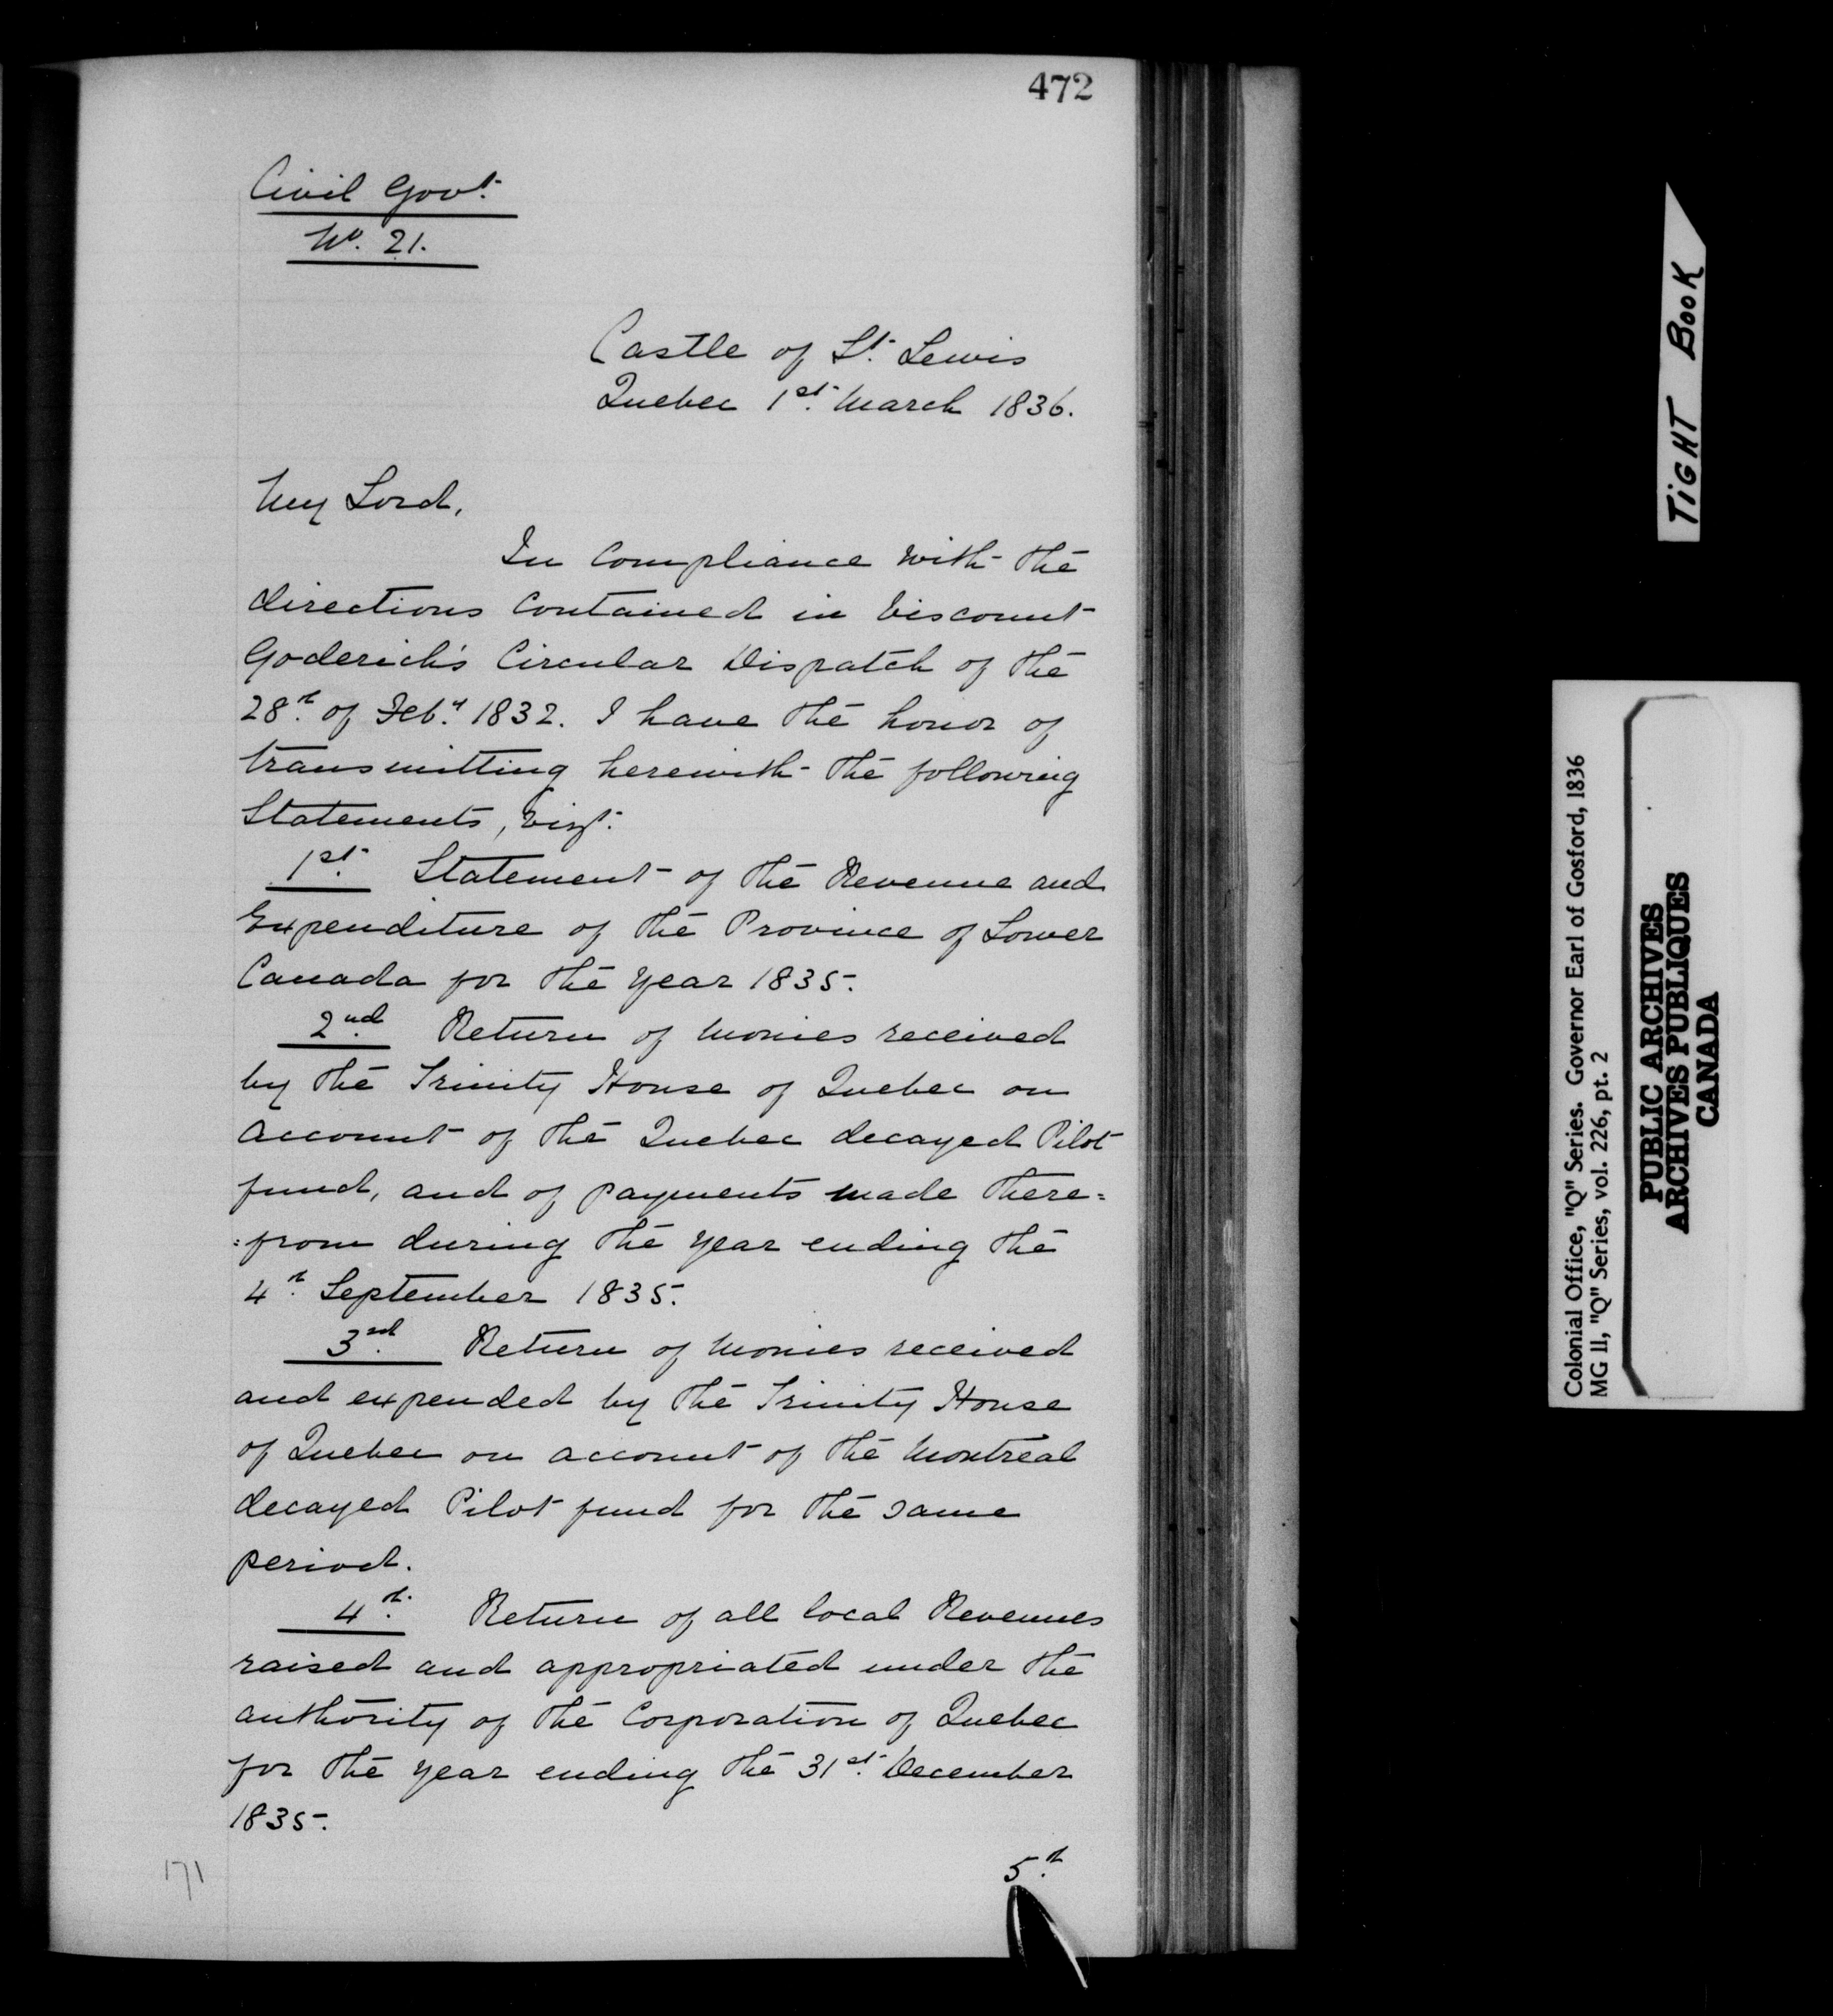 472
Civil Govt.
No. 21.
Castle of St. Lewis
Quebec 1st. March 1836.
My Lord,
In compliance with the
directions contained in Viscount
Goderich's Circular Dispatch of the
28th. of Feby. 1832. I have the honor of
transmitting herewith the following
Statements, Vizt.
1st. Statement of the Revenue and
Expenditure of the Province of Lower
Canada for the year 1835.
2nd. Return of monies received
by the Trinity House of Quebec on
account of the Quebec decayed Pilot
fund, and of payments made there=
=from during the year ending the
4th. September 1835.
3rd. Return of monies received
and expended by the Trinity House
of Quebec on account of the Montreal
decayed Pilot fund for the same
period.
4th. Return of all local Revenues
raised and appropriated under the
authority of the Corporation of Quebec
for the year ending the 31st. December
1835.
5th.
171
TIGHT BOOK
Colonial Office, "Q" Series. Governor Earl of Gosford, 1836
MG 11, "Q" Series, vol. 226, pt. 2
PUBLIC ARCHIVES
ARCHIVES PUBLIQUES
CANADA